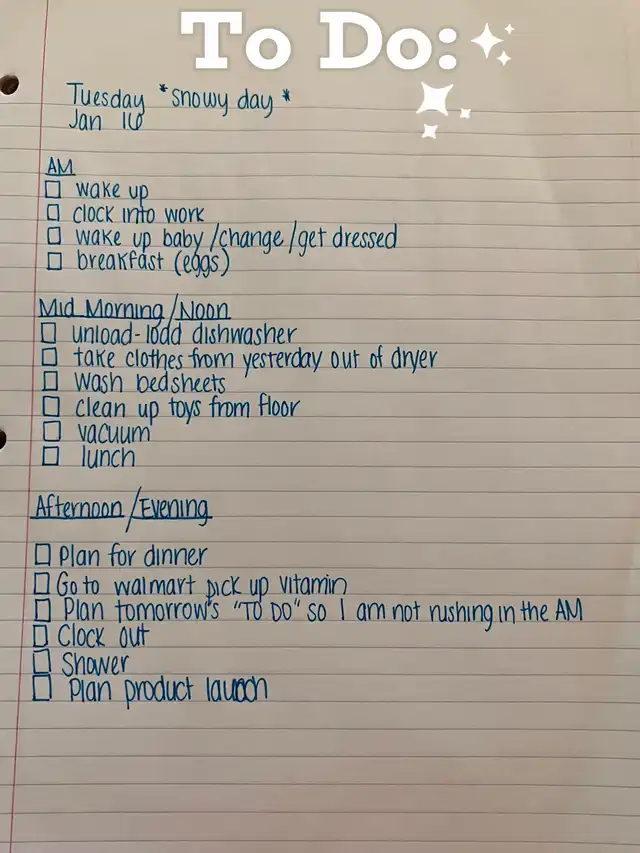 To Do:
Tuesday *snowy day*
Jan 16
AM
wake up
clock into work
wake up baby/change/get dressed
breakfast (eggs)
Mid Morning/Noon
unload-load dishwasher
take clothes from yesterday out of dryer
wash bedsheets
clean up toys from floor
vacuum
lunch
Afternoon/Evening
Plan for dinner
Go to walmart pick up vitamin
Plan tomorrow's "TO DO" so I am not rushing in the AM
Clock out
Shower
Plan product launch